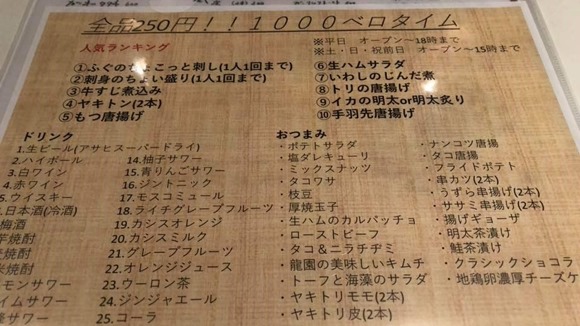 全品250円！！1000ベロタイム
※平日　オープン～18時まで
※土・日・祝前日　オープン～15時まで
人気ランキング
①ふぐのちょこっと刺し(1人1回まで)
②刺身のちょい盛り(1人1回まで)
③牛すじ煮込み
④ヤキトン(2本)
⑤もつ唐揚げ
⑥生ハムサラダ
⑦いわしのじんだ煮
⑧トリの唐揚げ
⑨イカの明太or明太炙り
⑩手羽先唐揚げ
ドリンク
1.生ビール(アサヒスーパードライ)
2.ハイボール
3.白ワイン
4.赤ワイン
5.ウイスキー
.日本酒(冷酒)
梅酒
芋焼酎
焼酎
焼酎
モンサワー
イムサワー
サワー
14.柚子サワー
15.青りんごサワー
16.ジントニック
17.モスコミュール
18.ライチグレープフルーツ
19.カシスオレンジ
20.カシスミルク
21.グレープフルーツ
22.オレンジジュース
23.ウーロン茶
24.ジンジャエール
25.コーラ
おつまみ
・ポテトサラダ
・塩ダレキューリ
・ミックスナッツ
・タコワサ
・枝豆
・厚焼玉子
・生ハムのカルパッチョ
・ローストビーフ
・タコ＆ニラチヂミ
・龍園の美味しいキムチ
・トーフと海藻のサラダ
・ヤキトリモモ(2本)
・ヤキトリ皮(2本)
・ナンコツ唐揚
・タコ唐揚
・フライドポテト
・串カツ(2本)
・うずら串揚げ(2本)
・ササミ串揚げ(2本)
・揚げギョーザ
・明太茶漬け
・鮭茶漬け
・クラシックショコラ
・地鶏卵濃厚チーズケ